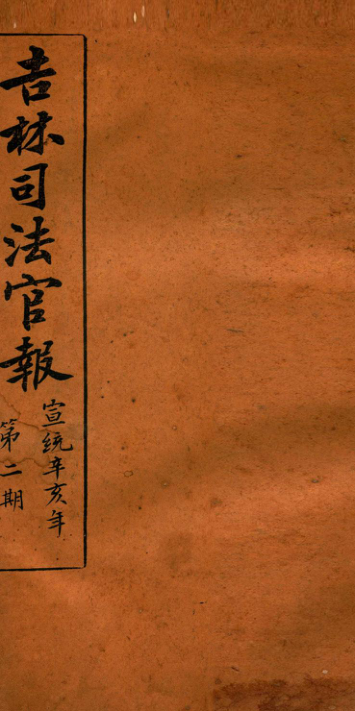 吉林司法官報
宣統辛亥年
第二期